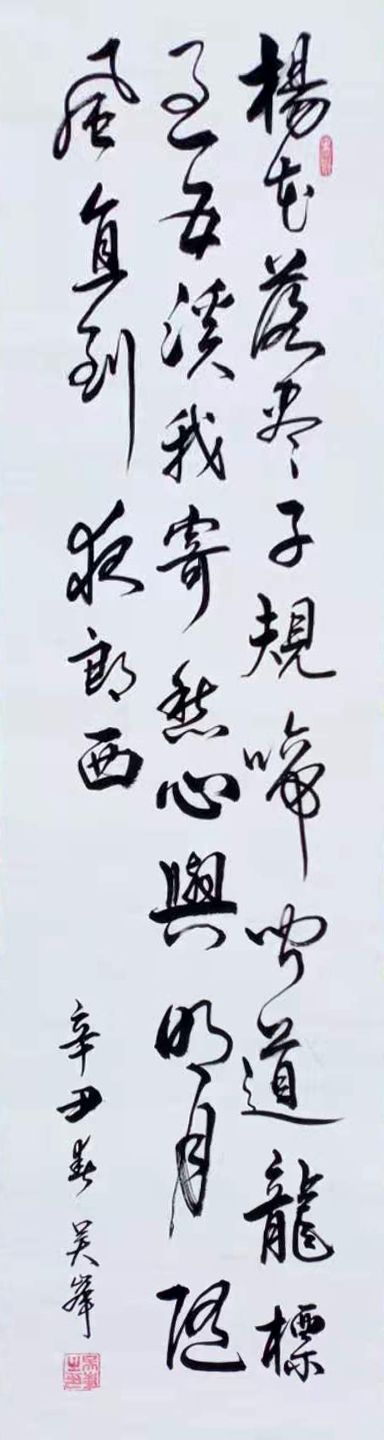 楊花落盡子規啼聞道龍標
過五溪我寄愁心與明月隨
風直到夜郎西
辛丑春吴峯